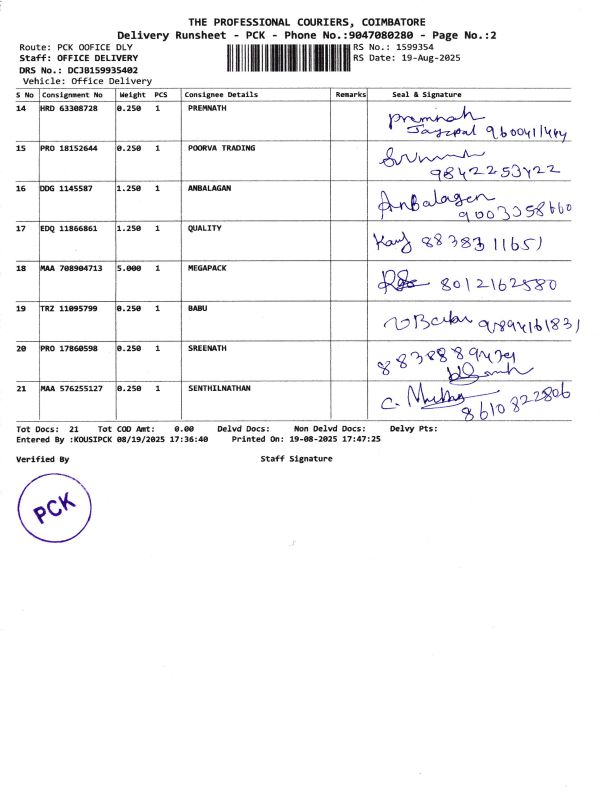 THE PROFESSIONAL COURIERS, COIMBATORE
Delivery Runsheet - PCK - Phone No.:9047080280 - Page No.:2
Route: PCK OOFICE DLY RS No.: 1599354
Staff: OFFICE DELIVERY RS Date: 19-Aug-2025
DRS No.: DCJB159935402
Vehicle: Office Delivery
S No Consignment No Weight PCS Consignee Details Remarks Seal & Signature
14 HRD 63308728 0.250 1 PREMNATH Premnah
15 PRO 18152644 0.250 1 POORVA TRADING
9842253422
16 DDG 1145587 1.250 1 ANBALAGAN AnBalagen
9003358660
17 EDQ 11866861 1.250 1 QUALITY
18 MAA 708904713 5.000 1 MEGAPACK 8012162580
19 TRZ 11095799 0.250 1 BABU 9894161831
20 PRO 17860598 0.250 1 SREENATH
21 MAA 576255127 0.250 1 SENTHILNATHAN C.
8610822806
Tot Docs: 21 Tot COD Amt: 0.00 Delvd Docs: Non Delvd Docs: Delvy Pts:
Entered By :KOUSIPCK 08/19/2025 17:36:40 Printed On: 19-08-2025 17:47:25
Verified By Staff Signature
PCK